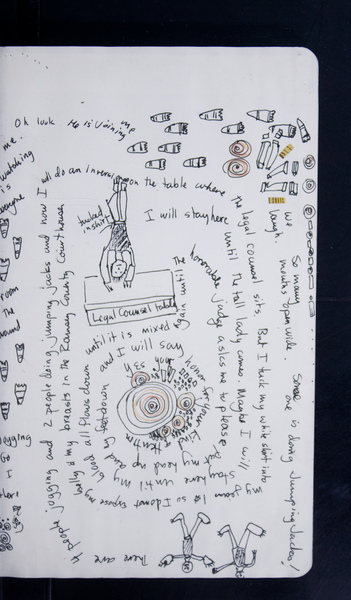 Oh look He is joining me
me.
watching
is
everyone
room
The
around
jogging
Go
I
There
There are
4 people jogging and 2 people doing jumping jacks and now I will do an Inversion on the table where
the legal counsel sits. But I tuck my white shirt into
my jeans so I do not expose my
belly and my breasts in the Ramsey County Courthouse
I will stay here
until the tall lady comes. Maybe I will
stay here until my
blood all flows down
and feet down
until it is mixed
again until The
honorable judge asks me to please
put my head up
and I will say
yes
your
honor
tucked
in shirt
Legal Counsel table
So many
mouths open wide
we
laugh.
Some one is doing Jumping Jacks!